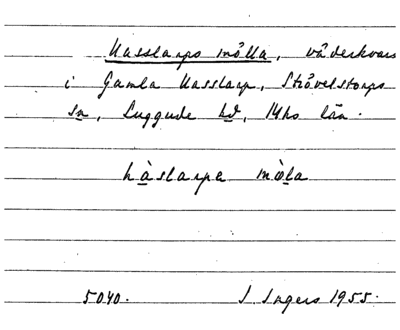 Vasslarps mölla, väderkvarn
i Gamla Vasslarp, Strövelstorps
sn, Luggude hd, Mhs län.
vàslarpa mø̀la
5040. I. Ingers 1955.